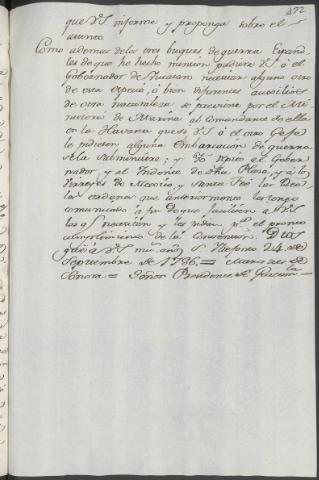 472
que VS informe y proponga sobre el
asunto.
Como ademas de los tres buques de guerra Españo-
les de que he hecho mencion pudiere VS ó el
Gobernador de Yucatan necesitar alguno otro
de esta especie, ó bien diferentes auxilios
de otra naturaleza se previene por el Mi-
nisterio de Marina al Comandante de ella
en la Havana que si VS ó el otro Gefe
le pidiere alguna Embarcacion de guerra
se la subministre; y Yo repito al Gober-
nador y al Yntendente de dha Plaza, y á los
Virreyes de Mexico y Santa Feé las Rea-
les ordenes que anteriormente les tengo
comunicadas á fin de que faciliten á VS
los qe necesiten y les pidan pa el pronto
cumplimiento de la Convencion. Dios
gūe á VS ms as Sn Yldefonso 24 de
Septiembre de 1786 = Marques de
Sonora = Señor Presidente de Guatemla